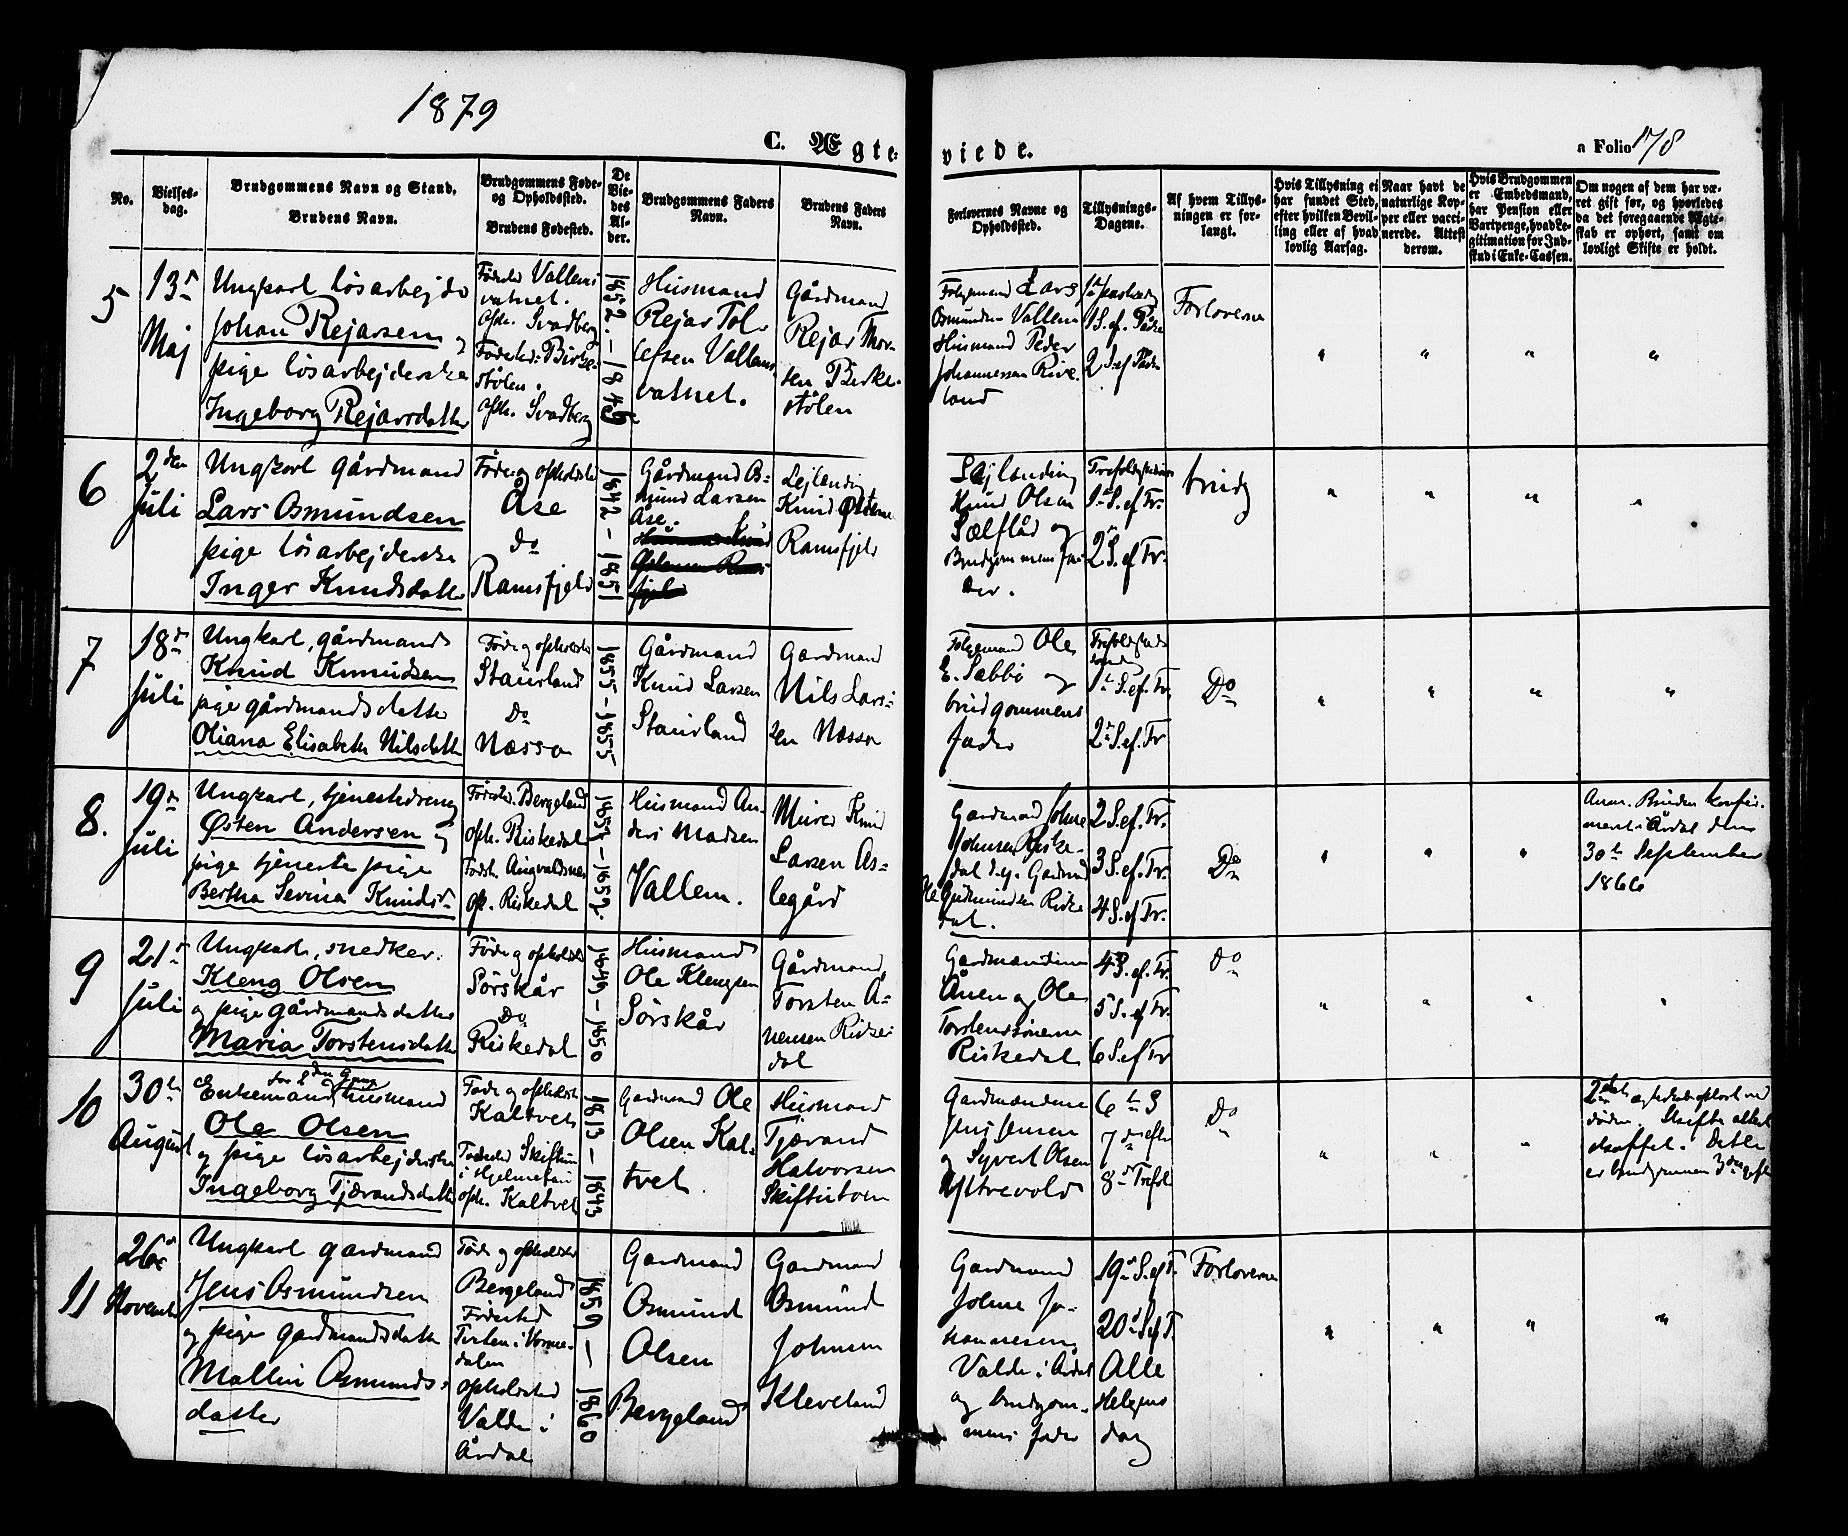 1879
C. Ægte-
viede.
a Folio 178
No.
Vielses-
dag.
Brudgommens Navn og Stand.
Brudens Navn.
Brudgommens Føde-
og Opholdssted.
Brudens Fødested.
De
Vie-
des
Al-
der.
Brudgommens Faders
Navn.
Brudens Faders
Navn.
Forlovernes Navne og
Opholdssted.
Tillysnings-
Dagene.
Af hvem Tillys-
ningen er for-
langt.
Hvis Tillysning ei
har fundet Sted,
efter hvilken Bevil-
ling eller af hvad
lovlig Aarsag.
Naar havt de
naturlige Kop-
per eller vacci-
nerede. Attest
derom.
Hvis Brudgommen
er Embedsmand,
har Pension eller
Vartpenge, hvad Le-
gitimation for Ind-
skud i Enke-Cassen.
Om nogen af dem har væ-
ret gift før, og hvorledes
da det foregaaende Ægte-
skab er ophørt, samt om
lovligt Skifte er holdt.
5
13de
Maj
Ungkarl løsarbejder
Johan Rejarsen og
pige løsarbejderske
Ingeborg Rejarsdatter
Fødested Vallems
vatnet.
oph. Svadberg
Fødested: Birke-
stølen.
oph. Svadberg
1852. - 1845
Husmand
Rejar Tol-
lefsen Vallems
vatnet.
Gårdmand
Rejar Thor-
sen Birke-
stølen
Folgemand Lars
Osmundsen Vallem
Husmand Peder
Johannessen Rive-
land
1 S. ef. Påske
2 S. ef Påske
Forloverne
6
2den
Juli
Ungkarl gårdmand
Lars Osmundsen
pige løsarbejderske
Inger Knudsdatter
Føde og opholdsted
Åse
Do
Ramsfjeld
1842 - 1851
Gårdmand Os-
mund Larsen
Åse.
Lejlending
Knud Østense
Ramsfjeld
Lejlending
Knud Olsen
Sælflåd og
Brudgommens fa-
der.
1 S. ef Tr.
2 S. ef Tr.
brudg
7
18de
Juli
Ungkarl, gårdmands
Knud Knudsen
pige gårdmandsdatter
Oliana Elisabeth Nilsdatter
Føde og opholdsted
Staurland
Do
Næssa
1855 - 1855
Gårdmand
Knud Larsen
Staurland
Gardmand
Nils Lars-
sen Næssa
Folgemand Ole
E. Sæbbø og
brudgommens
fader
1 S. ef. Tr.
2 S. ef. Tr
Do
8.
19de
Juli
Ungkarl, tjenestedreng
Østen Andersen og
pige tjenestepige
Bertha Serina Knudsd.
Fødested. Bergeland
oph. Riskedal
Fødest. Augvaldsnes
op. Riskedal
1857 - 1852.
Husmand An-
ders Madsen
Vallem.
Murer Knud
Larsen As-
legård
Gardmand Johne
Johnsen Riske-
dal og Gardmd
Ole Gudmundsen Riske
dal.
2 S. ef. Tr.
3 S. ef. Tr.
4 S. ef Tr.
Do
Anm. Bruden konfir-
meret i Årdal den
30te September
1866
9
21de
Juli
Ungkarl, snedker.
Kleng Olsen
og pige gårdmandsdatter
Maria Torstensdatter
Føde og opholdsted
Sørskår
Do
Riskedal
1849 - 1850
Husmand
Ole Klengsen
Sørskår
Gårdmand,
Torsten Å-
nensen Riske-
dal
Gardmændene
Ånen og Ole
Torstensønerne
Riskedal
4 S. ef. Tr.
5 S. ef Tr.
6 S. ef Tr
Do
10
30te
August
for 2den Gang
Enkemand, husmand
Ole Olsen
og pige løsarbejderske
Ingeborg Tjærandsdatter
Føde og opholdste
Kaltvet
Fødested Skiftun
i Hjelmeland
oph. Kaltvet
1813 - 1843
Gardmand Ole
Olsen Kal-
tvet
Husmand
Tjærand
Halvorsen
Skiftuntoen
Gardmændene
Jens Jensen
og Syvert Olsen
Ytrevold
6te S
7de efter
8de Trefol
Do
2det ægteskab ophørt ved
døden. Skifte attest
skaffet. Dette
er brudgommen 3die gift
11
26de
November
Ungkarl gardmand
Jens Osmundsen
og pige gardmandsdatter
Mallin Osmunds-
datter
Føde og opholdsted
Bergeland
Fødested
Tveten i Vorme-
dalen
opholdsted
Valde i
Årdal
1859 - 1860
Gardmand
Osmund
Olsen
Bergeland
Gardmand
Osmund
Johnsen
Kleveland
Gardmand
Johne Jo-
hannesen
Valde i Årdal
og brudgom-
mens fader
19de S. ef T.
20de S. ef T.
Alle
Helgens
dag
Forloverne